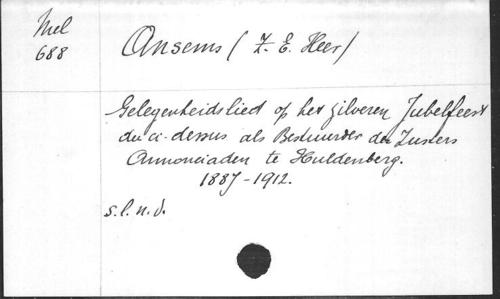 Mel
688
Ansems (Z. E. Heer)
Gelegenheidslied op het zilveren Jubelfeest
du ci-dessus als Bestuurder der Zusters
Annonciaden te Huldenberg.
1887-1912.
s.l.n.d.